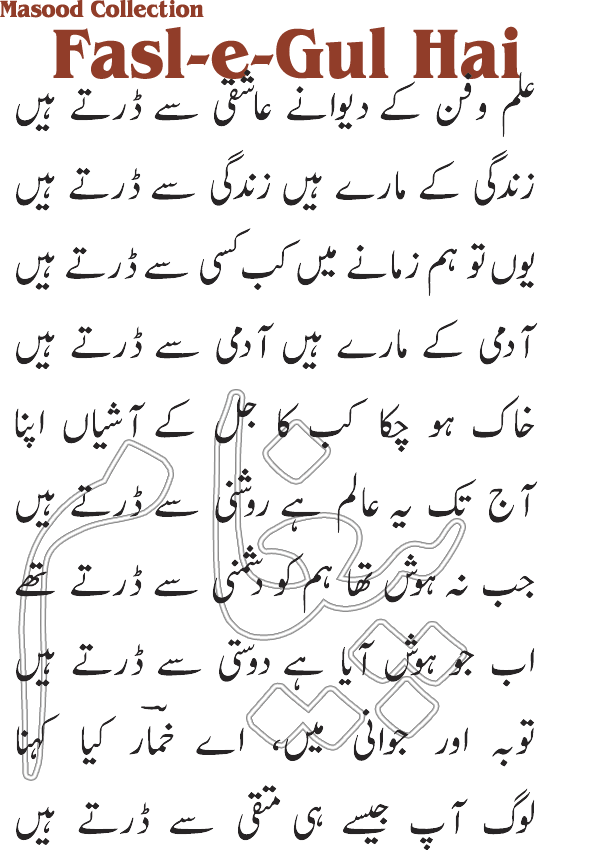 Masood Collection
Fasl-e-Gul Hai
علم و فن کے دیوانے عاشقی سے ڈرتے ہیں
زندگی کے مارے ہیں زندگی سے ڈرتے ہیں
یوں تو ہم زمانے میں کب کسی سے ڈرتے ہیں
آدمی کے مارے ہیں آدمی سے ڈرتے ہیں
خاک ہو چکا کب کا جل کے آشیاں اپنا
آج تک یہ عالم ہے روشنی سے ڈرتے ہیں
جب نہ ہوش تھا ہم کو دشمنی سے ڈرتے تھے
اب جو ہوش آیا ہے دوستی سے ڈرتے ہیں
توبہ اور جوانی میں، اے خمار کیا کہنا
لوگ آپ جیسے ہی متقی سے ڈرتے ہیں
پیغام